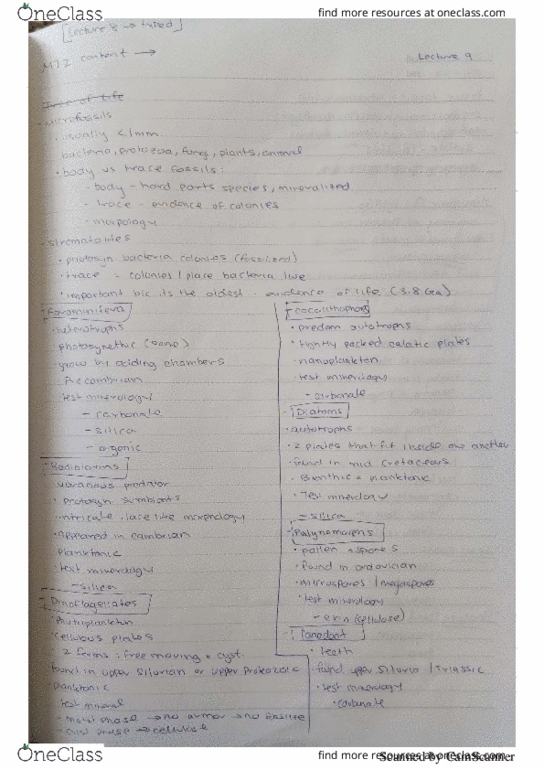 OneClass
find more resources at oneclass.com
[Lecture 8 → typed]
MT2 content →
Lecture 9
Tree of Life
- Microfossils
• usually <1mm
bacteria, protozoa, fungi, plants, animal
• body vs trace fossils:
- body - hard parts species, mineralized
- trace - evidence of colonies
- mopology
- Stromatolites
• photosyn bacteria colonies (fossilized)
• trace = colonies / place bacteria live
• important b/c its the oldest evidence of life (3.8 Ga)
Foraminifera
heterotrophs
photosynthetic (some)
grow by adding chambers
Precambrian
test minerology
- carbonate
- silica
- organic
Radiolarians
voracious predator
• photosyn symbionts
intricate, lace like morphology
• appeared in cambrian
planktonic
test mineralogy
- silica
Dinoflagellates
Phytoplankton
cellulous plates
• 2 forms: free moving + cyst
found in upper silurian or upper Proterozoic
planktonic
test mineral
- motil phase → no armor → no fossile
- cyst phase → cellulose
Coccolithophores
• predom autotrophs
• tightly packed calcitic plates
• nanoplankton
• test minerology
- carbonate
- Diatoms
autotrophs
• 2 plates that fit inside one another
found in mid cretaceous
• Benthic + planktonic
• Test minerology
- silica
- Palynomorphs
• pollen + spores
• found in ordovician
• microspores / megaspores
• test minerology
(cellulose)
• teeth
found upper / Triassic
• test minerology
• carbonate
OneClass
find more resources at oneclass.com
Scanned by CamScanner